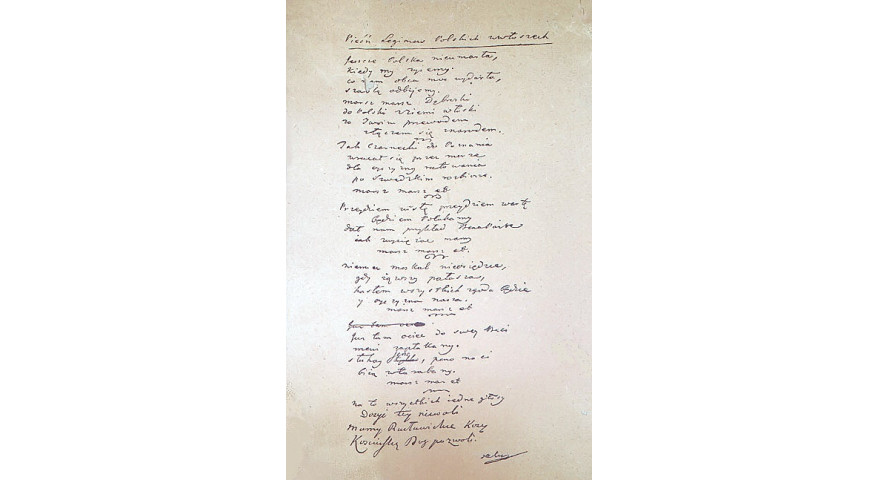 Pieśń Legionów Polskich we włoszech
Jeszcze Polska nieumarła,
kiedy my żyjemy.
co nam obca moc wydarła,
szablą odbijemy.
marsz marsz Dąbrowski
do Polski z ziemi włoski
za Twoim przewodem
złączem się z narodem.
Jak Czarnecki do Poznania
wracał się przez morze
dla ojczyzny ratowania
po szwedzkim rozbiorze.
marsz marsz et
Przejdziem wisłę przejdziem wartę
będziem Polakamy
dał nam przykład Bonaparte
jak zwyciężac mamy
marsz marsz et.
niemiec moskal nieosiędzie,
gdy jąwszy pałasza,
hasłem wszystkich zgoda będzie
y oyczyzna nasza.
marsz marsz et
Jusz tam
Jusz tam ociec do swey Basi
mowi zapłakany.
słuchay, pono nasi
biią w tarabany.
marsz mar et
na to wszystkich iedne głosy
Dosyć tey niewoli
mamy Racławickie Kosy
Kościuszkę Bog pozwoli.